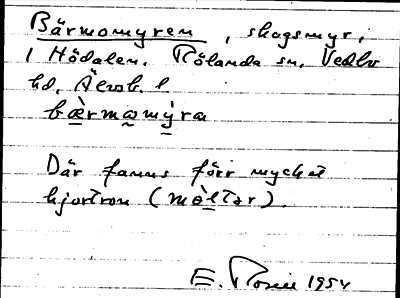 Bärmomyren, skogsmyr,
i Hödalen. Rölanda sn, Vedbo
hd, Älvsb. l
bæ̀rmomýra
Där fanns förr mycket
hjortron (mòltər).
E. 1954